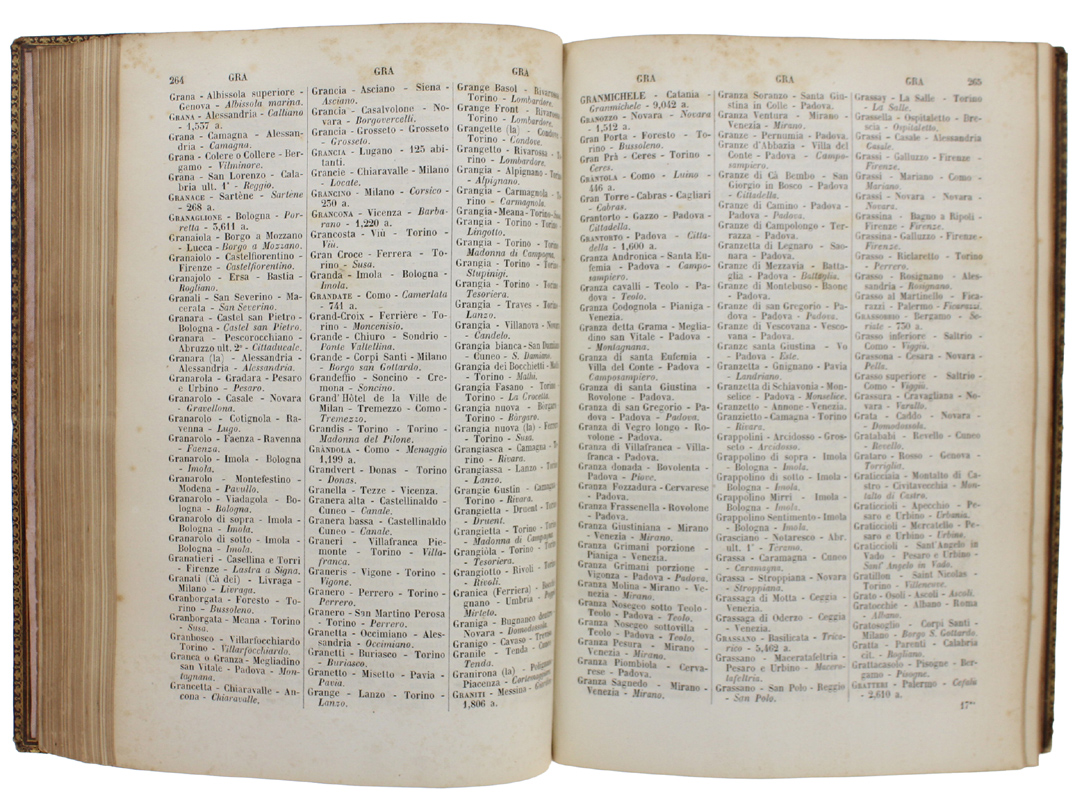 264
GRA
GRA
GRA
Grana - Albissola superiore -
Genova - Albissola marina.
GRANA - Alessandria - Calliano
- 1,557 a.
Grana - Camagna - Alessan-
dria - Camagna.
Grana - Colere o Collere - Ber-
gamo - Vilminore.
Grana - San Lorenzo - Cala-
bria ult. 1ª - Reggio.
GRANACE - Sartène - Sartène
- 268 a.
GRANAGLIONE - Bologna - Por-
retta - 3,611 a.
Granaiola - Borgo a Mozzano
- Lucca - Borgo a Mozzano.
Granaiolo - Castelfiorentino -
Firenze - Castelfiorentino.
Granajolo - Ersa - Bastia -
Rogliano.
Granali - San Severino - Ma-
cerata - San Severino.
Granara - Castel san Pietro -
Bologna - Castel san Pietro.
Granara - Pescorocchiano -
Abruzzo ult. 2ª - Cittaducale.
Granara (la) - Alessandria -
Alessandria - Alessandria.
Granarola - Gradara - Pesaro
e Urbino - Pesaro.
Granarolo - Casale - Novara
- Gravellona.
Granarolo - Cotignola - Ra-
venna - Lugo.
Granarolo - Faenza - Ravenna
- Faenza.
Granarolo - Imola - Bologna
- Imola.
Granarolo - Montefestino -
Modena - Pavullo.
Granarolo - Viadagola - Bo-
logna - Bologna.
Granarolo di sopra - Imola -
Bologna - Imola.
Granarolo di sotto - Imola -
Bologna - Imola.
Granatieri - Casellina e Torri
- Firenze - Lastra a Signa.
Granati (Cà dei) - Livraga -
Milano - Livraga.
Granborgata - Foresto - To-
rino - Bussoleno.
Granborgata - Meana - Torino
- Susa.
Granbosco - Villarfocchiardo
Torino - Villarfocchiardo.
Granca o Granza - Megliadino
san Vitale - Padova - Mon-
tagnana.
Grancetta - Chiaravalle - An-
cona - Chiaravalle.
Grancia - Asciano - Siena -
Asciano.
Grancia - Casalvolone - No-
vara - Borgovercelli.
Grancia - Grosseto - Grosseto
- Grosseto.
GRANCIA - Lugano - 125 abi-
tanti.
Grancie - Chiaravalle - Milano
- Locate.
GRANCINO - Milano - Corsico -
250 a.
GRANCONA - Vicenza - Barba-
rano - 1,220 a.
Grancosta - Viù - Torino -
Viù.
Gran Croce - Ferrera - To-
rino - Susa.
Granda - Imola - Bologna -
Imola.
GRANDATE - Como - Camerlata
- 741 a.
Grand-Croix - Ferrière - To-
rino - Moncenisio.
Grande - Chiuro - Sondrio -
Ponte Valtellina.
Grande - Corpi Santi - Milano
- Borgo san Gottardo.
Grandeffio - Soncino - Cre-
mona - Soncino.
Grand'Hôtel de la Ville de
Milan - Tremezzo - Como -
Tremezzo.
Grandis - Torino - Torino -
Madonna del Pilone.
GRANDOLA - Como - Menaggio
1,199 a.
Grandvert - Donas - Torino
- Donas.
Granella - Tezze - Vicenza.
Granera alta - Castellinaldo -
Cuneo - Canale.
Granera bassa - Castellinaldo
Cuneo - Canale.
Graneri - Villafranca Pie-
monte - Torino - Villa-
franca.
Graneris - Vigone - Torino -
Vigone.
Granero - Perrero - Torino -
Perrero.
Granero - San Martino Perosa
- Torino - Perrero.
Granetta - Occimiano - Ales-
sandria - Occimiano.
Granetti - Buriasco - Torino
- Buriasco.
Granetto - Misetto - Pavia -
Pavia.
Grange - Lanzo - Torino -
Lanzo.
Grange Basol - Rivarossa
Torino - Lombardore.
Grange Front - Rivarossa
Torino - Lombardore.
Grangette (la) - Condove
Torino - Condove.
Grangetto - Rivarossa - To-
rino - Lombardore.
Grangia - Alpignano - Torino
- Alpignano.
Grangia - Carmagnola - To-
rino - Carmagnola.
Grangia - Meana - Torino -
Grangia - Torino - Torino
Lingotto.
Grangia - Torino - Torino
Madonna di Campagna.
Grangia - Torino - Torino
Stupinigi.
Grangia - Torino - Torino
Tesoriera.
Grangia - Traves - Torino
Lanzo.
Grangia - Villanova - Novara
- Candelo.
Grangia bianca - San Damiano
- Cuneo - S. Damiano.
Grangia dei Bocchietti -
- Torino - Mathi.
Grangia Fasano - Torino
Torino - La Crocetta.
Grangia nuova - Borgaro
Torino - Borgaro.
Grangia nuova (la) -
- Torino - Susa.
Grangiasca - Camagna - To-
rino - Rivara.
Grangiassa - Lanzo - Torino
Lanzo.
Grangie Gustin - Camagna
Torino - Rivara.
Grangietta - Druent - Torino
- Druent.
Grangietta - Torino - Torino
- Madonna di Campagna.
Grangiola - Torino - Torino
- Tesoriera.
Grangiotto - Rivoli - Torino
- Rivoli.
Granica (Ferriera) -
gnano - Umbria -
Mirteto.
Graniga - Bugnanco dentro
Novara - Domodossola.
Granigo - Cavaso - Treviso
Granile - Tenda - Cuneo
Tenda.
Granirona (la) -
Piacenza -
GRANITI - Messina -
1,806 a.
GRA
GRA
GRA
265
GRANMICHELE - Catania -
Granmichele - 9,042 a.
GRANOZZO - Novara - Novara
- 1,512 a.
Gran Porta - Foresto - To-
rino - Bussoleno.
Gran Prà - Ceres - Torino -
Ceres.
GRANTOLA - Como - Luino -
446 a.
Gran Torre - Cabras - Cagliari
- Cabras.
Grantorto - Gazzo - Padova -
Cittadella.
GRANTORTO - Padova - Citta-
della - 1,600 a.
Granza Andronica - Santa Eu-
femia - Padova - Campo-
sampiero.
Granza cavalli - Teolo - Pa-
dova - Teolo.
Granza Codognola - Pianiga -
Venezia.
Granza detta Grama - Meglia-
dino san Vitale - Padova
- Montagnana.
Granza di santa Eufemia -
Villa del Conte - Padova -
Camposampiero.
Granza di santa Giustina -
Rovolone - Padova.
Granza di san Gregorio - Pa-
dova - Padova - Padova.
Granza di Vegro longo - Ro-
volone - Padova.
Granza di Villafranca - Villa-
franca - Padova.
Granza donada - Bovolenta -
Padova - Piove.
Granza Fozzadura - Cervarese
- Padova.
Granza Frassenella - Rovolone
- Padova.
Granza Giustiniana - Mirano
- Venezia - Mirano.
Granza Grimani porzione -
Pianiga - Venezia.
Granza Grimani porzione -
Vigonza - Padova - Padova.
Granza Molina - Mirano - Ve-
nezia - Mirano.
Granza Nosegeo sotto Teolo -
Teolo - Padova - Teolo.
Granza Nosegeo sottovilla -
Teolo - Padova - Teolo.
Granza Pesura - Mirano -
Venezia - Mirano.
Granza Piombiola - Cerva-
rese - Padova.
Granza Saguedo - Mirano -
Venezia - Mirano.
Granza Soranzo - Santa Giu-
stina in Colle - Padova.
Granza Ventura - Mirano -
Venezia - Mirano.
Granze - Pernumia - Padova.
Granze d'Abbazia - Villa del
Conte - Padova - Campo-
sampiero.
Granze di Cà Bembo - San
Giorgio in Bosco - Padova
- Cittadella.
Granze di Camino - Padova -
Padova - Padova.
Granze di Campolongo - Ter-
razza - Padova.
Granzetta di Legnaro - Sao-
nara - Padova.
Granze di Mezzavia - Batta-
glia - Padova - Battaglia.
Granze di Montebuso - Baone
- Padova.
Granze di san Gregorio - Pa-
dova - Padova - Padova.
Granze di Vescovana - Vesco-
vana - Padova.
Granze santa Giustina - Vo
- Padova - Este.
Granzetta - Gnignano - Pavia
- Landriano.
Granzetta di Schiavonia - Mon-
selice - Padova - Monselice.
Granzetto - Annone - Venezia.
Granzietto - Camagna - Torino
- Rivara.
Grappolini - Arcidosso - Gros-
seto - Arcidosso.
Grappolino di sopra - Imola
- Bologna - Imola.
Grappolino di sotto - Imola -
Bologna - Imola.
Grappolino Mirri - Imola -
Bologna - Imola.
Grappolino Sentimento - Imola
- Bologna - Imola.
Grasciano - Notaresco - Abr.
ult. 1ª - Teramo.
Grassa - Caramagna - Cuneo
- Caramagna.
Grassa - Stroppiana - Novara
- Stroppiana.
Grassaga di Motta - Ceggia -
Venezia.
Grassaga di Oderzo - Ceggia
- Venezia.
GRASSANO - Basilicata - Trica-
rico - 5,462 a.
Grassano - Maceratafeltria -
Pesaro e Urbino - Macera-
tafeltria.
Grassano - San Polo - Reggio
- San Polo.
Grassay - La Salle - Torino
- La Salle.
Grassella - Ospitaletto - Bre-
scia - Ospitaletto.
Grassi - Casale - Alessandria
Casale.
Grassi - Galluzzo - Firenze -
Firenze.
Grassi - Mariano - Como -
Mariano.
Grassi - Novara - Novara -
Novara.
Grassina - Bagno a Ripoli -
Firenze - Firenze.
Grassina - Galluzzo - Firenze -
Firenze.
Grasso - Riclaretto - Torino
- Perrero.
Grasso - Rosignano - Ales-
sandria - Rosignano.
Grasso al Martinello - Fica-
razzi - Palermo - Ficarazzi.
GRASSOBBIO - Bergamo - Se-
riate - 750 a.
Grasso inferiore - Saltrio -
Como - Viggiù.
Grassona - Cesara - Novara -
Pella.
Grasso superiore - Saltrio -
Como - Viggiù.
Grassura - Cravagliana - No-
vara - Varallo.
Grata - Caddo - Novara -
- Domodossola.
Gratabahi - Revello - Cuneo
- Revello.
Grataro - Rosso - Genova -
Torriglia.
Graticciaia - Montalto di Ca-
stro - Civitavecchia - Mon-
talto di Castro.
Graticcioli - Apecchio - Pe-
saro e Urbino - Urbania.
Graticcioli - Mercatello - Pe-
saro e Urbino - Urbino.
Graticcioli - Sant'Angelo in
Vado - Pesaro e Urbino -
Sant'Angelo in Vado.
Gratillon - Saint Nicolas -
Torino - Villeneuve.
Grato - Osoli - Ascoli - Ascoli.
Gratocchie - Albano - Roma
- Albano.
Gratosoglio - Corpi Santi -
Milano - Borgo S. Gottardo.
Gratta - Parenti - Calabria
cit. - Rogliano.
Grattacasolo - Pisogne - Ber-
gamo - Pisogne.
GRATTERI - Palermo - Cefalù
- 2,610 a.
17**